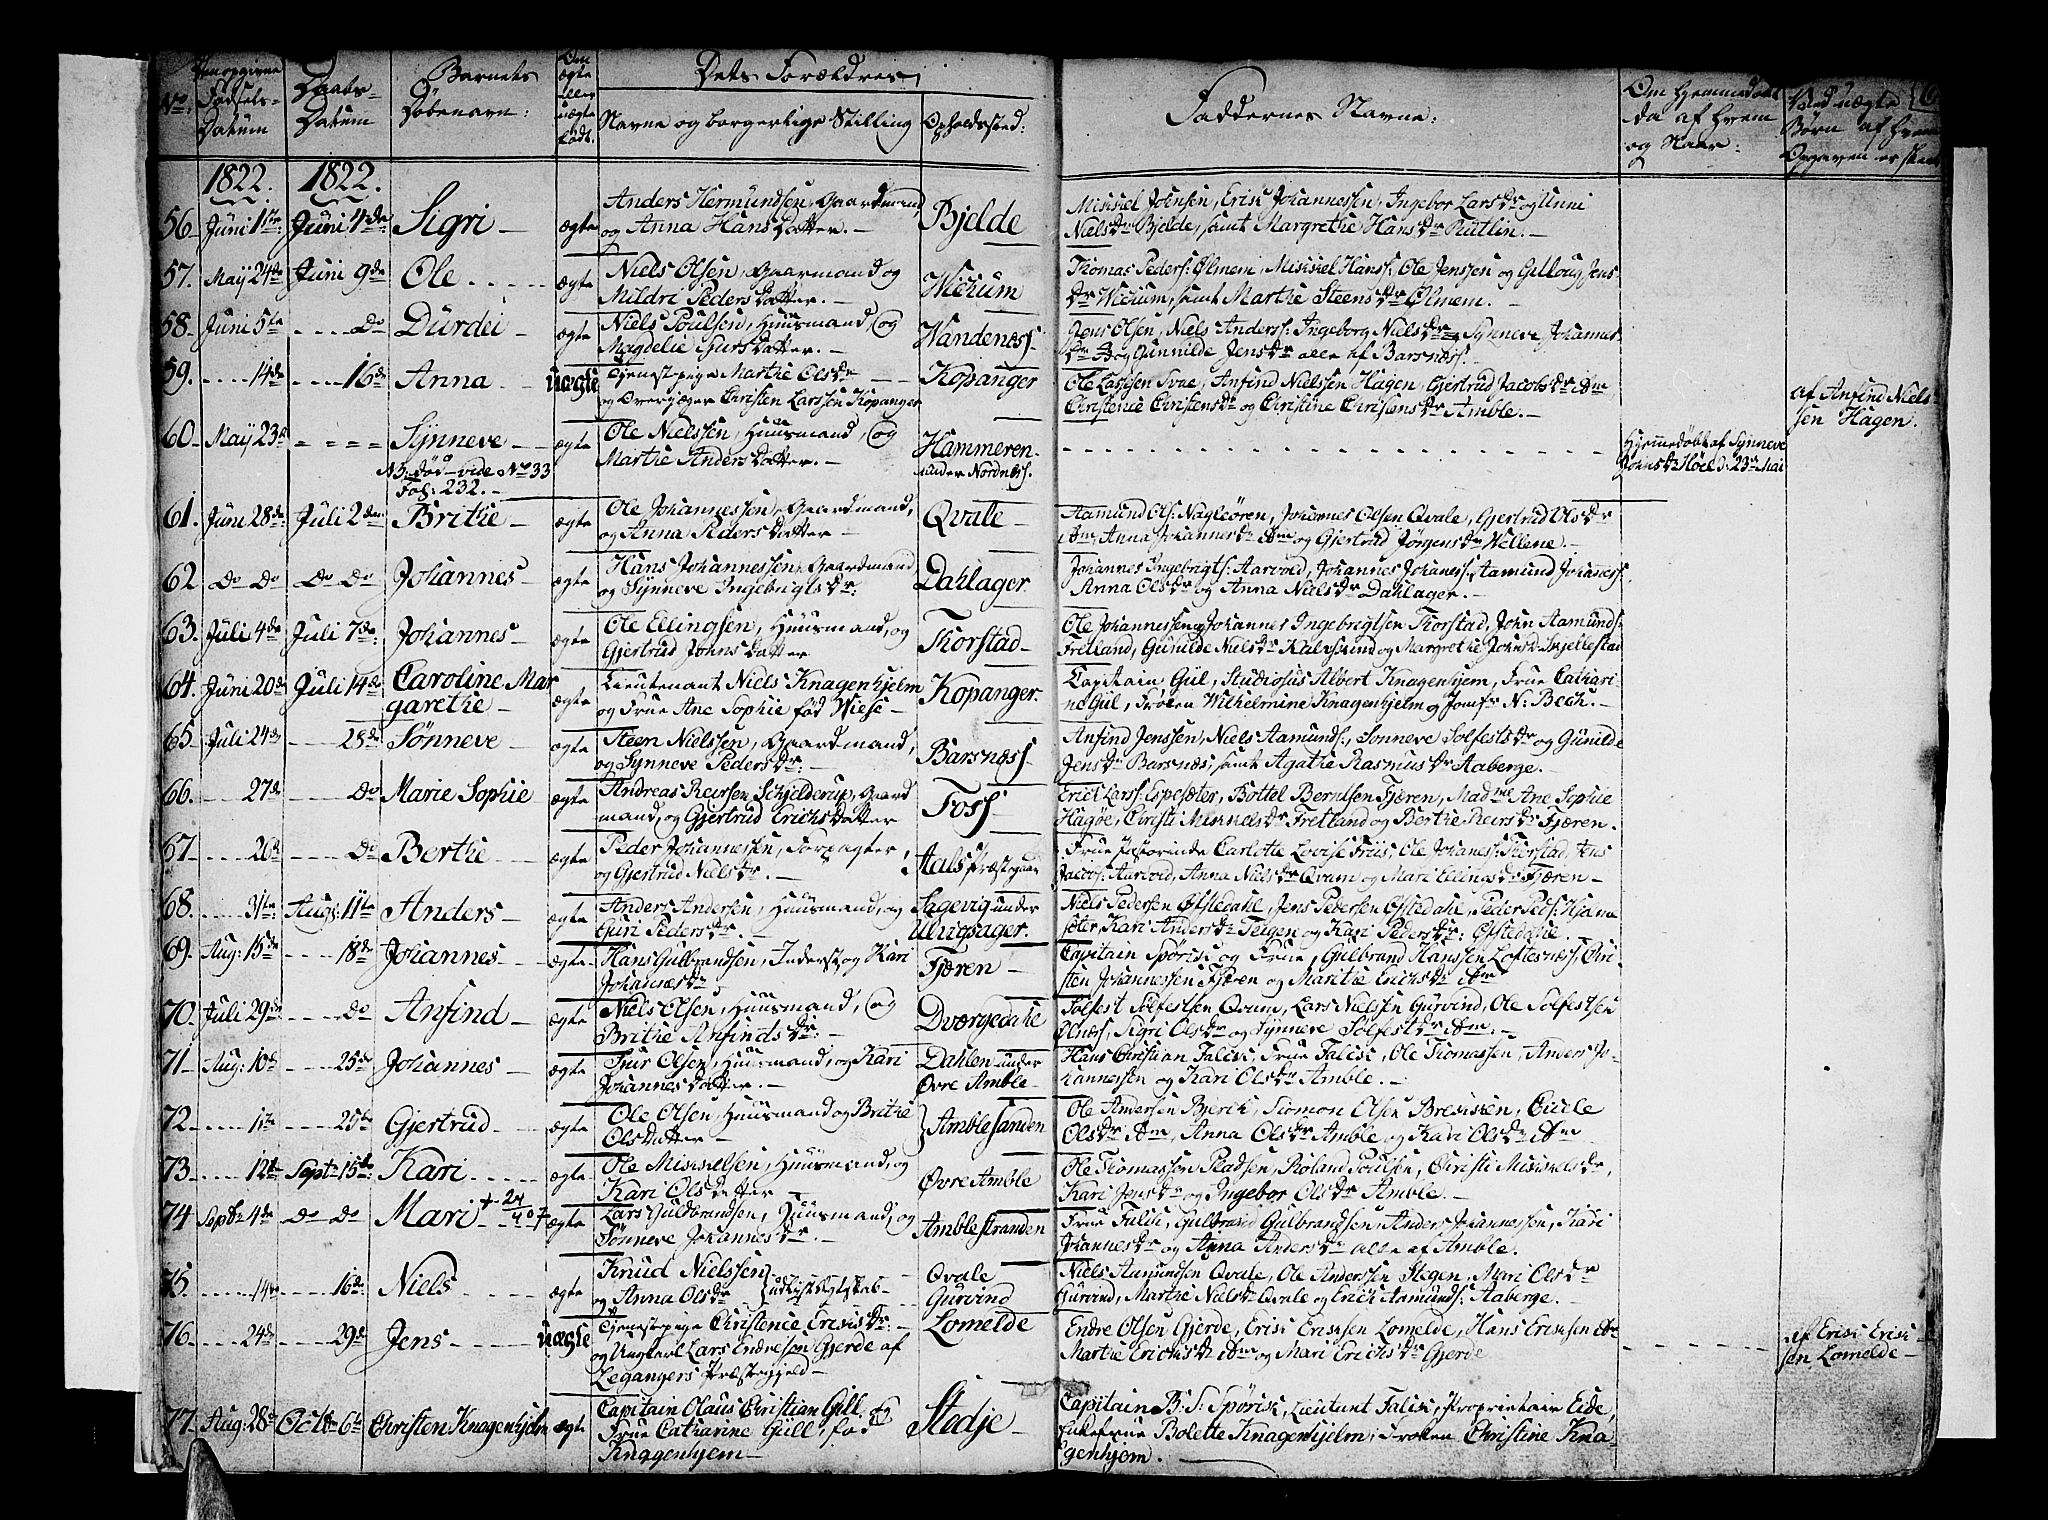 No:
Den opgivne Fødsels-Datum
Daabs-Datum
Barnets Døbenavn:
Om ægte eller uægte født.
Dets Forældres
Navne og borgerlige Stilling
Opholdssted:
Faddernes Navne:
Om hjemmedøbt da af hvem og Naar:
Ved uægte Børn af hvem Opgaven er skeet
1822. 1822.
56. Juni 1ste Juni 4de Sigri ægte Anders Hermundsen, Gaardmand, og Anna Hans Datter. Bjelde
Mikkel Johnsen, Erik Johannessen, Ingebor Larsdr og Unni
Nielsdr Bjelde, samt Margrethe Hansdr Rutlin.
57. May 24de Juni 9de Ole ægte Niels Olsen, Gaarmand og Mildri Peders Datter. Wiehum
Thomas Peders: Ølmem, Mikkel Hans: Ole Jenssen og Gillaug Jens
dr Wiehum, samt Marthe Steensdr Ølmem.
58. Juni 5te Do Durdei ægte Niels Poulsen, Huusmand, og Magdelie Gurs Datter. Wandenæss
Jens Olsen, Niels Anders: Ingeborg Nielsdr Synneve Johannes
dr og Gunnilde Jensdr alle af Barsnæss.
59. 14de 16de Anna uægte Tjenestpige Marthe Olsdr og Overjæger Christen Larssen Kopanger Kopanger
Ole Larssen Svae, Anfind Nielssen Hagen, Gjertrud Jacobsdr ibm
Christence Christensdr og Christine Christensdr Amble.
af Anfind Niels-
sen Hagen.
60. May 23de Synneve ægte Ole Nielssen, Huusmand, og Marthe Anders Datter. Hammeren under Nordnæss.
NB: død vide No 33
Fol: 232.
Hjemmedøbt af Synneve
Johnsdr Høel d: 23de Mai
61. Juni 28de Juli 2den Brithe ægte Ole Johannessen, Gaardmand, og Anna Peders Datter Qvale
Aamund Ols: Nagleøren, Johannes Olsen Qvale, Gjertrud Olsdr
ibm Anna Johannesdr ibm og Gjertrud Jørgensdr Wellene.
62 Do Do Do Do Johannes ægte Hans Johannessen, Gaardmand og Synneve Ingebrigtsdr: Dahlager
Johannes Ingebrigts: Aarvold, Johannes Johaness: Aamund Johaness:
Anna Olsdr og Anna Nielsdr Dahlager.
63. Juli 4de Juli 7de Johannes ægte Ole Ellingsen, Huusmand, og Gjertrud Johns Datter Thorstad
Ole Johannessen og Johannes Ingebrigtsen Thorstad, John Aamunds:
Fretland, Gunilde Nielsdr Kalvskind og Margrethe Johnsdr Skjellestad
64. Juni 20de Juli 14de Caroline Margarethe ægte Lieutenant Niels Knagenhjelm og Frue Ane Sophie fød Wiese Kopanger.
Capitain Gül, Studiosus Albert Knagenhjem, Frue Cathari-
ne Gül, Frøken Wilhelmine Knagenhjelm og Jomfr N: Bech.
65. Juli 24de 28de Sønneve ægte Steen Nielssen, Gaardmand, og Synneve Pedersdr: Barsnæss
Anfind Jenssen, Niels Aamunds:, Sønneve Solfestsdr og Gunilde
Jensdr Barsnæs, samt Agathe Rasmusdr Aaberge.
66. 27de Do Marie Sophie ægte Andreas Reiersen Schjelderup, Gaardmand, og Gjertrud Erichs Datter Foss
Erich Larss: Espesæter, Bottel Berntsen Fjæren, Madme Ane Sophie
Hagøe, Christi Mikkelsdr Fretland og Berthe Reiersdr Fjæren.
67. 26de Do Berthe ægte Peder Johannessen, Forpagter og Gjertrud Nielsdr. Aals Præstegaar
Frue Pastorinde Carlotte Lovise Friis, Ole Johaness: Thorstad, Jens
Jacobs: Aarvold, Anna Nielsdr Qvam og Mari Ellingsdr Fjæren
68. 31te Aug: 11te Anders ægte Anders Andersen, Huusmand, og Guri Pedersdr. Sagevig under Ulvigsager.
Niels Pedersen Ofstedahl, Jens Pedersen Ofstedahl, Peder Peds: Hjama
sæter, Kari Andersdr Teigen og Kari Pedersdr: Ofstedahl.
69. Aug: 15de 18de Johannes ægte Hans Gulbrandsen, Inderst, og Kari Johannesdr Fjæren
Capitain Spørck og Frue, Gulbrand Hanssen Loftesnæss, Chri-
sten Johannessen Fjæren og Marithe Erichsdr ibm
70. Juli 29de Do Anfind ægte Niels Olsen, Huusmand, og Brithe Anfindsdr: Dværgedahl
Solfest Solfestsen Qvam, Lars Nielsen Gurvind, Ole Solfestsen
Olnæs, Sigri Olsdr og Synneve Solfestdr ibm.
71. Aug: 10de 25de Johannes ægte Siur Olsen, Huusmand, og Kari Johannes Datter. Dahlen under Øvre Amble
Hans Christian Falck, Frue Falck, Ole Thomassen, Anders Jo-
hannessen og Kari Olsdr Amble.
72. 1te 25de Gjertrud ægte Ole Olsen, Huusmand og Brithe Ols Datter Amblesanden
Ole Andersen Bjerck, Simon Olsen Brekken, Cidle
Olsdr ibm, Anna Olsdr Amble og Kari Olsdr ibm
73. 12te Septr 15de Kari ægte Ole Mikkelsen, Huusmand, og Kari Ols Datter Øvre Amble
Ole Thomassen Pladsen, Roland Poulsen, Christi Mikkelsdr,
Kari Jensdr og Ingebor Olsdr Amble.
74 Septbr 4de Do Do Mari ægte Lars Gulbrandsen, Huusmand, og Sønneve Johannesdr. Amblestranden
Frue Falck, Gulbrand Gulbrandsen, Anders Johannessen, Kari
Johannesdr og Anna Andersdr alle af Amble.
75. 14de 16de Niels ægte Knud Nielssen og Anna Olsdr Qvale Gurvind
Niels Aamundsen Qvale, Ole Anderssen Stegen, Mari Olsdr
Gurvind, Marthe Nielsdr Qvale og Erich Aamunds: Aaberge.
76. 24de 29de Jens uægte Tjenestepige Christence Eriksdr: og Ungkarl Lars Endresøn Gjerde af Legangers Præstegjeld Lomelde
Endre Olsen Gjerde, Erik Eriksen Lomelde, Hans Eriksen ibm
Marthe Erichsdr ibm og Mari Erichsdr Gjerde
af Erik Erik-
sen Lomelde
77. Aug: 28de Octbr 6te Christen Knagenhjelm ægte Capitain Olaus Christian Gill, og Frue Catharine Güll, fød Knagenhjem Stedje
Capitain B: S: Spørck, Lieutnt Falck, Proprietair Eide,
Enkefrue Bolette Knagenhjelm, Frøken Christine Kna-
genhjem.